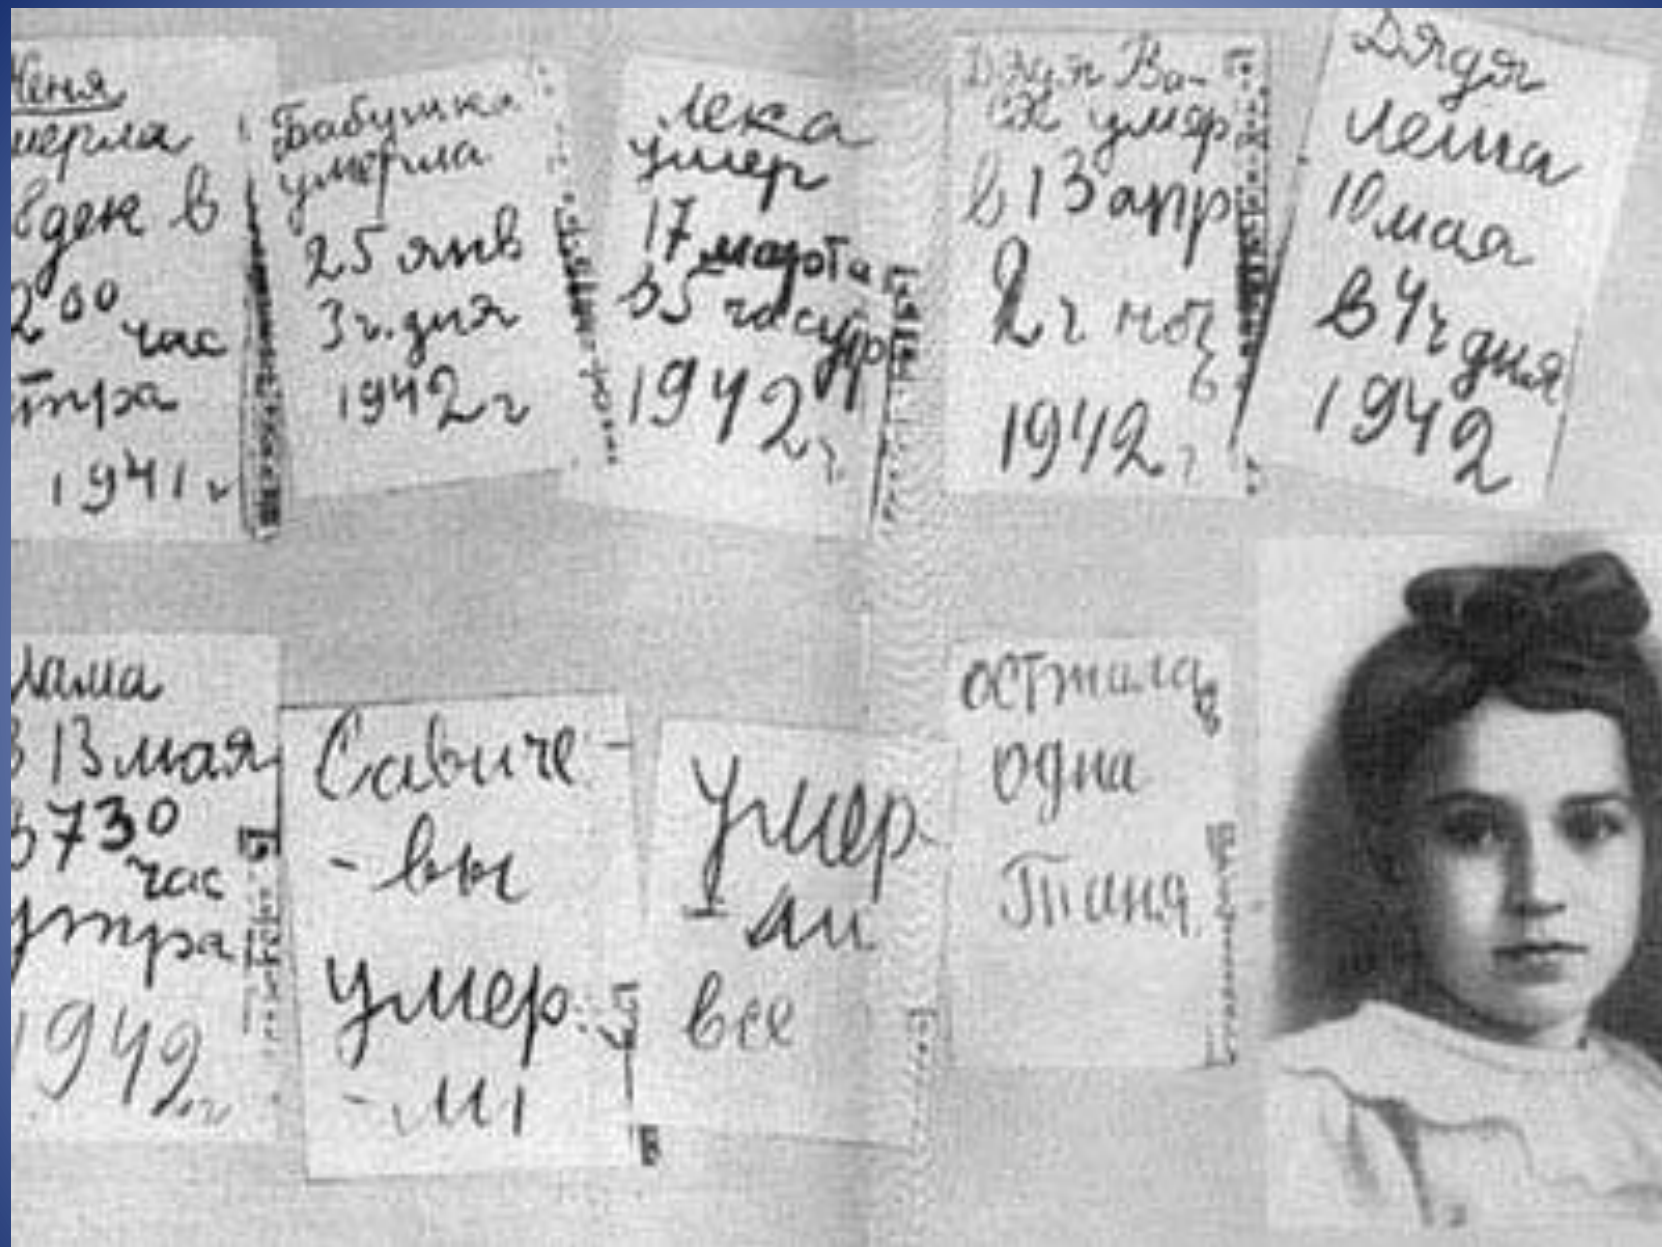 Женя
мерла
8 дек в
2 00 час
тра
1941 г
Бабушка
умерла
25 янв
3 ч. дня
1942 г
Лека
умер
17 марта
в 5 час утр
1942 г
Дядя Ва-
ся умер
в 13 апр
2 ч ноч
1942 г
Дядя
Леша
10 мая
в 4 ч дня
1942
Мама
в 13 мая
в 7 30
час
утра
1942 г
Савиче-
-вы
умер
-ли
Умер
-ли
все
осталась
одна
Таня